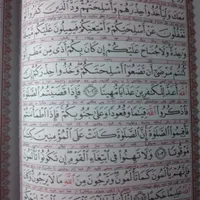 وَلْيَأْخُذُوا۟ حِذْرَهُمْ وَأَسْلِحَتَهُمْ وَدَّ ٱلَّذِينَ
تَغْفُلُونَ عَنْ أَسْلِحَتِكُمْ وَأَمْتِعَتِكُمْ فَيَمِيلُونَ عَلَيْكُم
وَٰحِدَةً وَلَا جُنَاحَ عَلَيْكُمْ إِن كَانَ بِكُمْ أَذًى مِّن مَّطَرٍ
كُنتُم مَّرْضَىٰٓ أَن تَضَعُوٓا۟ أَسْلِحَتَكُمْ وَخُذُوا۟ حِذْرَكُمْ إِنَّ
أَعَدَّ لِلْكَٰفِرِينَ عَذَابًا مُّهِينًا ١٠٢ فَإِذَا قَضَيْتُمُ ٱلصَّلَوٰةَ
فَٱذْكُرُوا۟ ٱللَّهَ قِيَٰمًا وَقُعُودًا وَعَلَىٰ جُنُوبِكُمْ فَإِذَا ٱطْمَأْنَنتُمْ
فَأَقِيمُوا۟ ٱلصَّلَوٰةَ إِنَّ ٱلصَّلَوٰةَ كَانَتْ عَلَى ٱلْمُؤْمِنِينَ
مَّوْقُوتًا ١٠٣ وَلَا تَهِنُوا۟ فِى ٱبْتِغَآءِ ٱلْقَوْمِ إِن تَكُونُوا۟ تَأْلَمُونَ
فَإِنَّهُمْ يَأْلَمُونَ كَمَا تَأْلَمُونَ وَتَرْجُونَ مِنَ ٱللَّهِ مَا لَا يَرْجُونَ